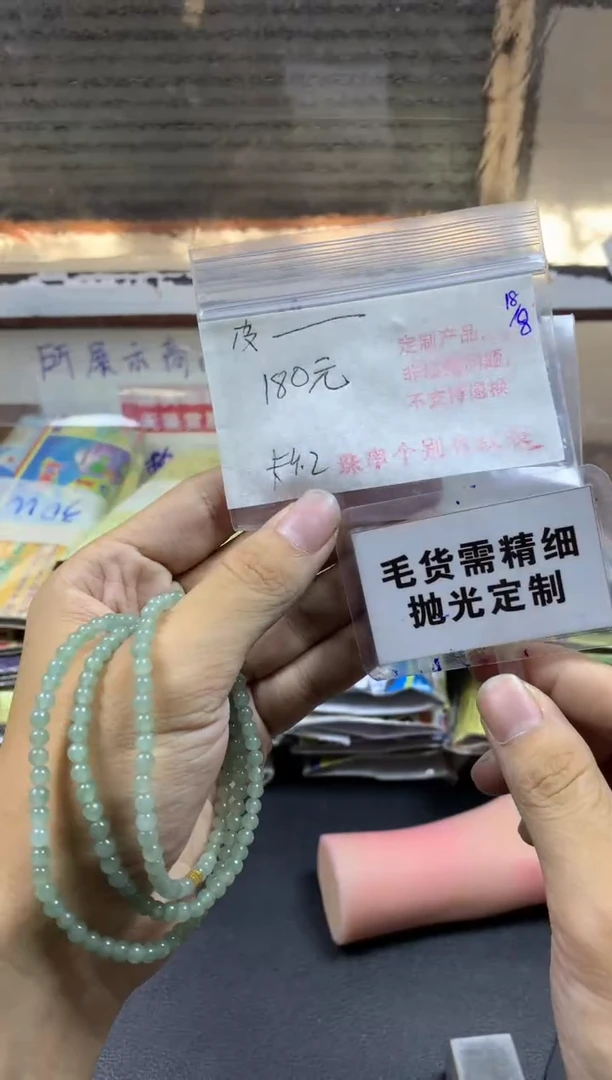 18/8
皮
180元
定制产品，
非质量问题，
不支持退换
卡4.2
珠串个别有纹
毛货需精细
抛光定制
所展示商
30W